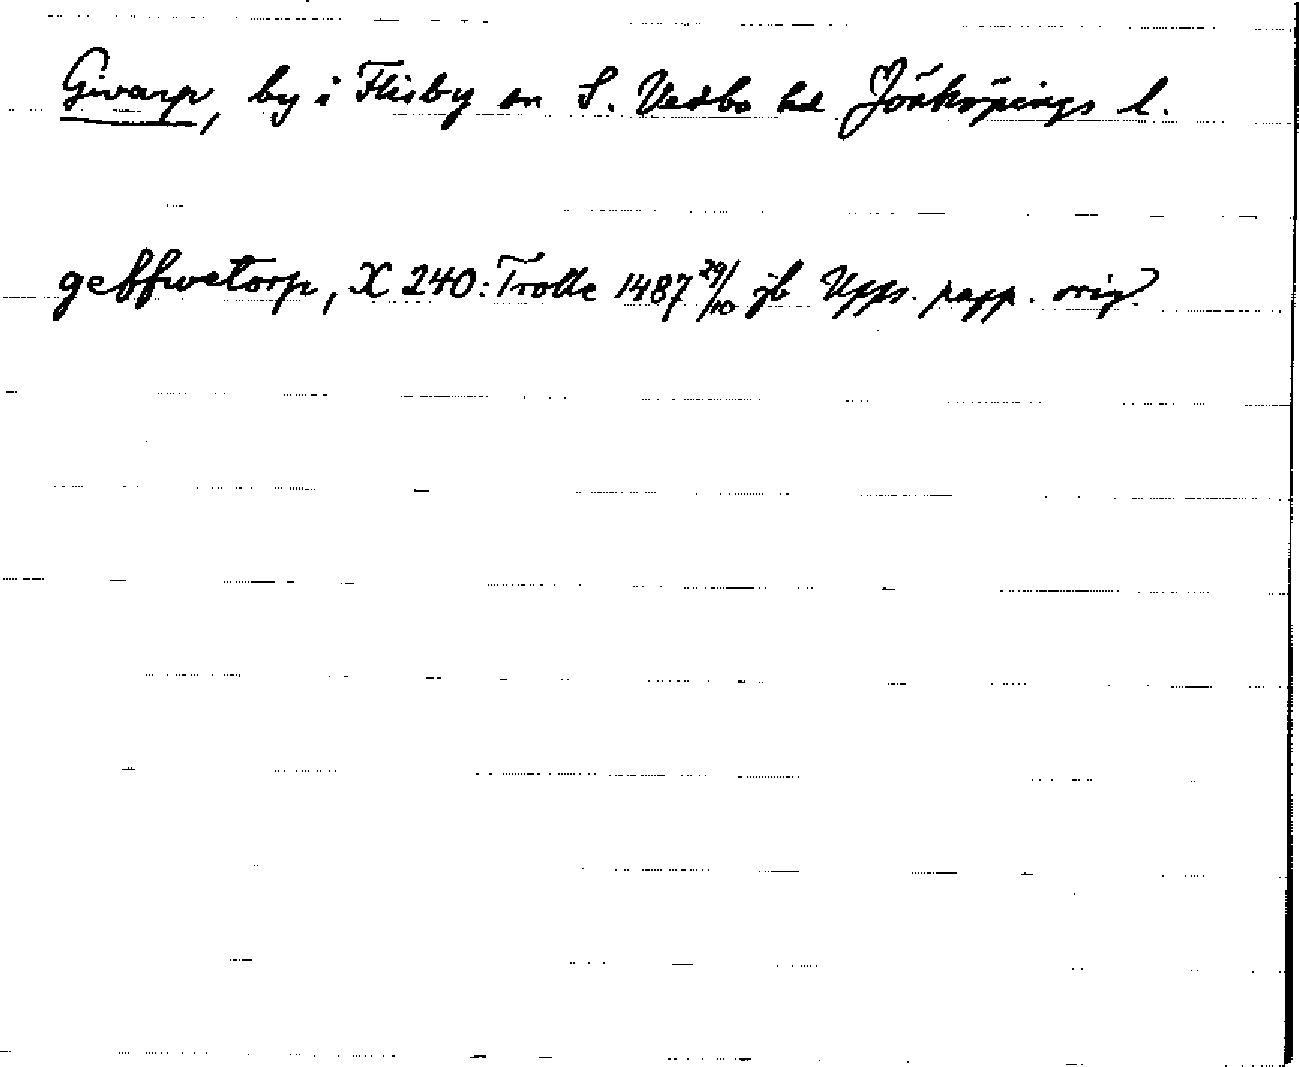 Givarp, by i Flisby sn S. Vedbo hd Jönköpings l.
geffwetorp, X 240: Trolle 1487 29/10 jb Upps. papp. orig.